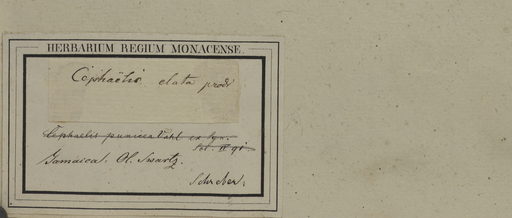 HERBARIUM REGIUM MONACENSE.
Cephaëlis elata prodr
Cephaelis punicea Vahl ex syn.
Jamaica. Ol. Swartz.
Schreber.